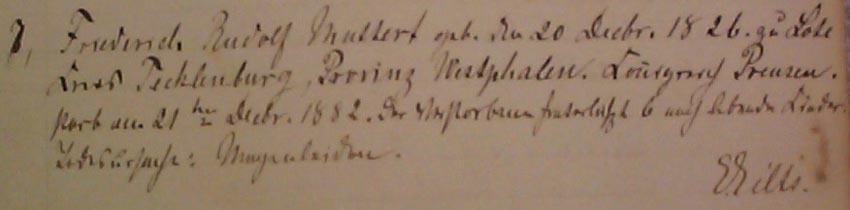 7, Friederich Rudolf Muttert geb. den 20 Decbr. 1826. zu Lote
Kreis Tecklenburg, Provinz Westphalen. Königreich Preusen.
starb am 21 ten Decbr. 1882. Der Verstorbene hinterlässt 6 noch lebende Kinder.
Todesursache: Magenleiden.